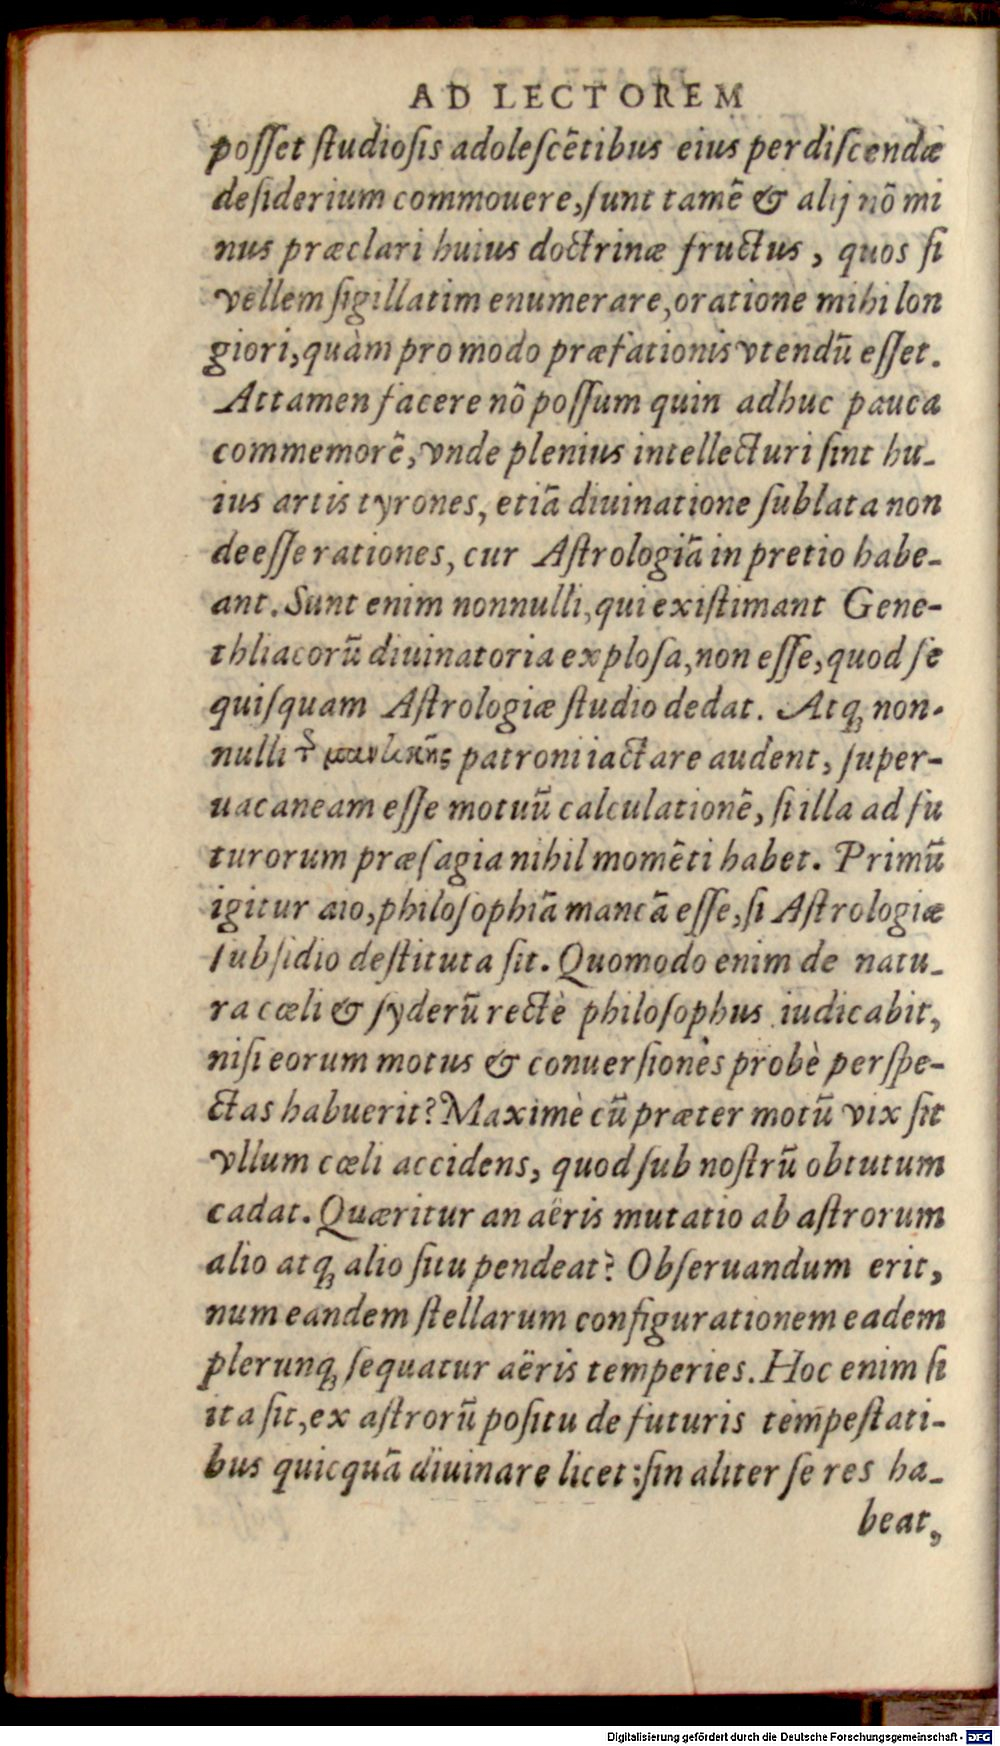 AD LECTOREM
posset studiosis adolescētibus eius perdiscendæ
desiderium commouere, sunt tamē & alij nō mi
nus præclari huius doctrinæ fructus, quos si
vellem sigillatim enumerare, oratione mihi lon
giori, quàm pro modo præfationis vtendū esset.
Attamen facere nō possum quin adhuc pauca
commemorē, vnde plenius intellecturi sint hu-
ius artis tyrones, etiā diuinatione sublata non
deesse rationes, cur Astrologiā in pretio habe-
ant. Sunt enim nonnulli, qui existimant Gene-
thliacorū diuinatoria explosa, non esse, quod se
quisquam Astrologiæ studio dedat. Atq; non-
nulli τ͂ μαντικῆς patroni iactare audent, super-
uacaneam esse motuū calculationē, si illa ad fu
turorum præsagia nihil momēti habet. Primū
igitur aio, philosophiā mancā esse, si Astrologiæ
subsidio destituta sit. Quomodo enim de natu-
ra cœli & syderū rectè philosophus iudicabit,
nisi eorum motus & conuersiones probè perspe-
ctas habuerit? Maximè cū præter motū vix sit
vllum cœli accidens, quod sub nostrū obtutum
cadat. Quæritur an aëris mutatio ab astrorum
alio atq; alio situ pendeat? Obseruandum erit,
num eandem stellarum configurationem eadem
plerunq; sequatur aëris temperies. Hoc enim si
ita sit, ex astrorū positu de futuris tempestati-
bus quicquā diuinare licet: sin aliter se res ha-
beat,
Digitalisierung gefördert durch die Deutsche Forschungsgemeinschaft - DFG